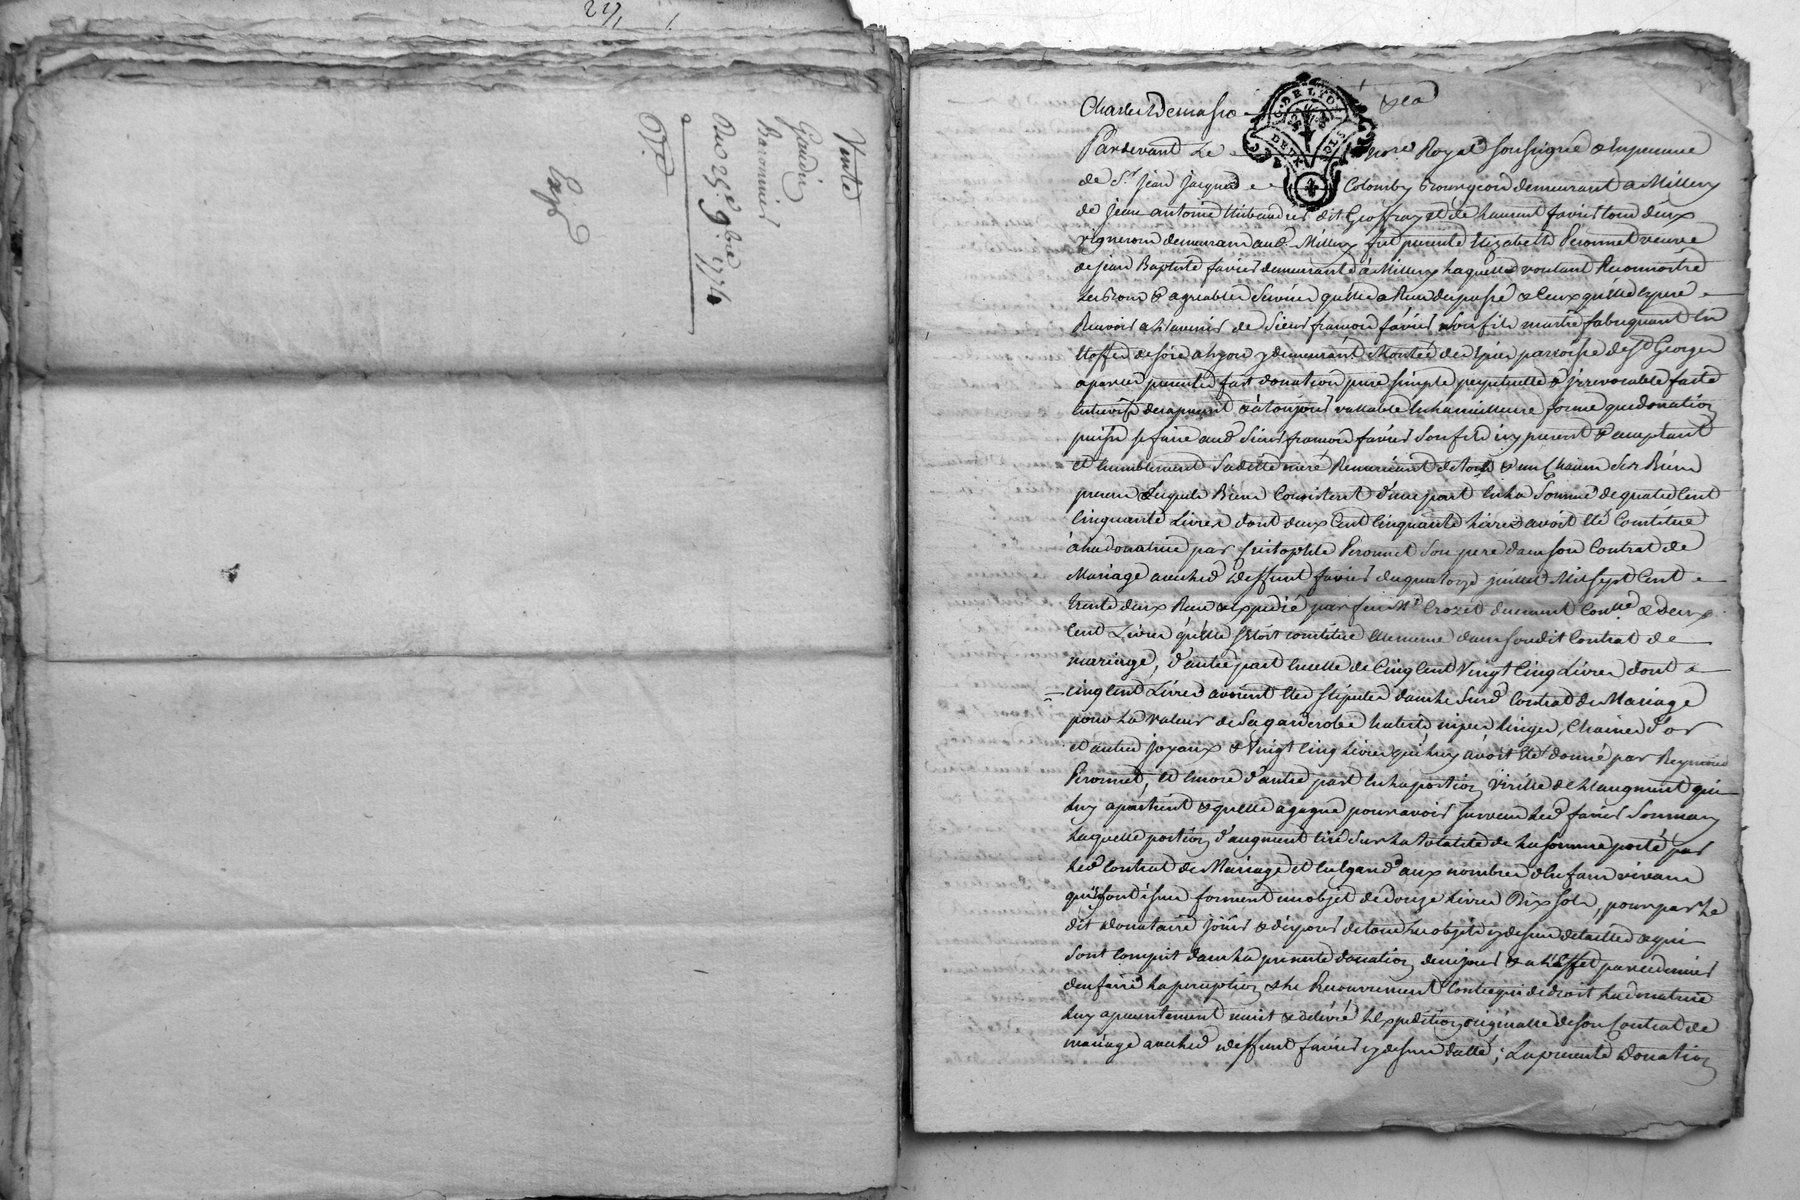 271
Vente
Gaudin
Baronnier
Du 25e 9bre 1774
Exp
G. DE LYON
DEUX SOLS
Pardevant Le Nore Royal soussigné & en presence
de Sr Jean Jacques Colomby Bourgeois demeurant a Millery
de Jean antoine thibaudier dit Geoffray et de Laurent favier tous deux
vignerons demeurant aud. Millery fut presente Elizabeth Peronnet veuve
de jean Baptiste favier demeurante à Millery Laquelle voulant Reconnoitre
Les Bons & agreables services qu'elle a Reçu du passé & Ceux qu'elle espere
Recevoir a L'avenir de Sieur françois favier son fils maitre fabriquant En
Etoffes de soie a Lyon y demeurant Montée des Epies parroisse de St George
a par ces presentes fait donation pure simple perpetuelle & jrrevocable faite
Entrevifs des a present & a toujours vallable En la meilleure forme que donation
puisse se faire aud Sieur françois favier son fils icy present & acceptant
et humblement sa ditte mere Remerciant de tous & un Chacun ses Biens
presens Lesquels Biens Consistent d'une part En La Somme de quatre Cent
Cinquante Livres dont deux Cent Cinquante Livres avoit Eté Constituée
à la donatrice par Cristophle Peronnet son pere dans son Contrat de
Mariage avec led deffunt favier du quatorze juillet Mil sept Cent
trente deux Reçu & expedié par feu Me Crozet duement Conllé & deux
Cent Livres qu'elle s'etoit constituée Elle meme dans sondit Contrat de
mariage, d'autre part En celle de Cinq Cent Vingt Cinq Livres dont
cinq Cent Livres avoient Eté stipulées dans le Susd Contrat de Mariage
pour La Valeur de Sa garderobe habits nipes Linges, Chaines d'or
et autres joyaux & Vingt Cinq Livres qui Luy avoit Eté donné par Reymond
Peronnet, et encore d'autre part En La portion Virile de L'augment qui
Luy apartient & qu'elle a gagné pour avoir survecu Led favier Son mary
Laquelle portion d'augment tiré sur La totalité de La somme porté par
Led Contrat de Mariage et Eu Egard aux nombres d'Enfans vivans
qui sont issus forment un objet de douze Livres Dix sols, pour par Le
dit Donataire jouir & disposer de tous Les objets cy dessus detaillés & qui
Sont Compris dans La presente donation des ce jour & a L'effet par ce dernier
d'en faire La perception & le Recouvrement Contre qui de droit La donatrice
Luy a presentement remit & delivré L'Expedition originalle de son Contrat de
mariage avec led deffunt favier cy dessus datté; La presente Donation